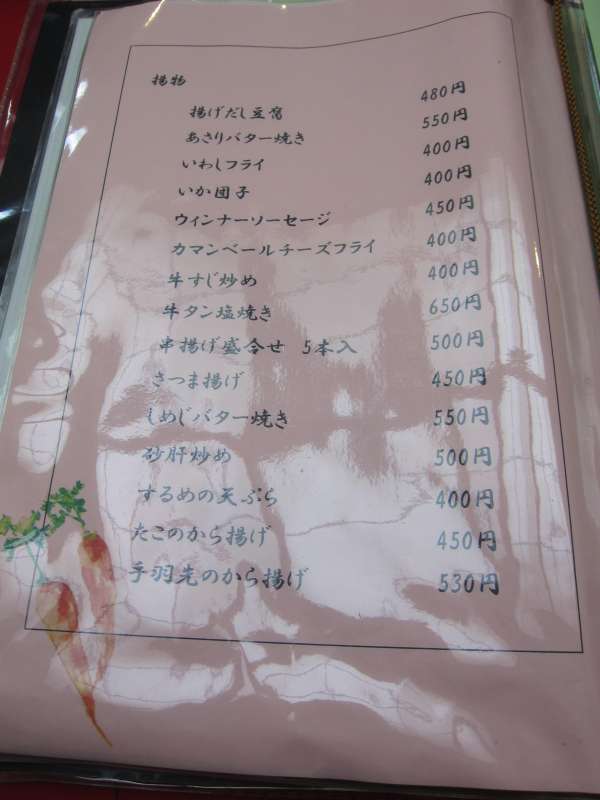 揚物
揚げだし豆腐 480円
あさりバター焼き 550円
いわしフライ 400円
いか団子 400円
ウィンナーソーセージ 450円
カマンベールチーズフライ 400円
牛すじ炒め 400円
牛タン塩焼き 650円
串揚げ盛合せ 5本入 500円
さつま揚げ 450円
しめじバター焼き 550円
砂肝炒め 500円
するめの天ぷら 400円
たこのから揚げ 450円
手羽先のから揚げ 530円